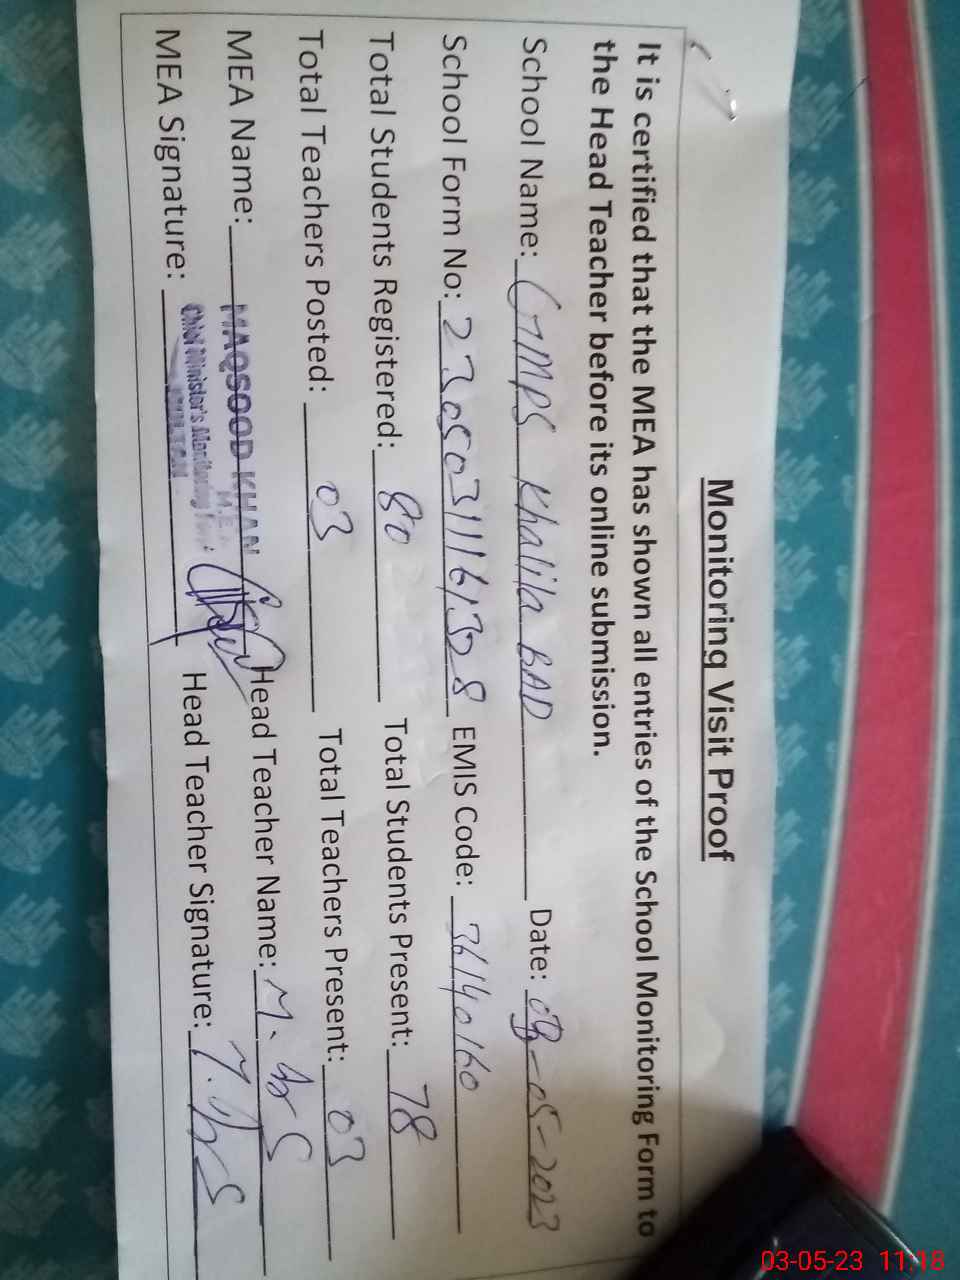 Monitoring Visit Proof
It is certified that the MEA has shown all entries of the School Monitoring Form to
the Head Teacher before its online submission.
School Name: GMPS Date: 03-05-2023
School Form No: EMIS Code: 36140160
Total Students Registered: 80 Total Students Present: 78
Total Teachers Posted: 03 Total Teachers Present: 03
MEA Name: MAQSOOD KHAN Head Teacher Name:
M.E.A
Chief Minister's Monitoring Force
MEA Signature: MULTAN Head Teacher Signature:
03-05-23 11:18